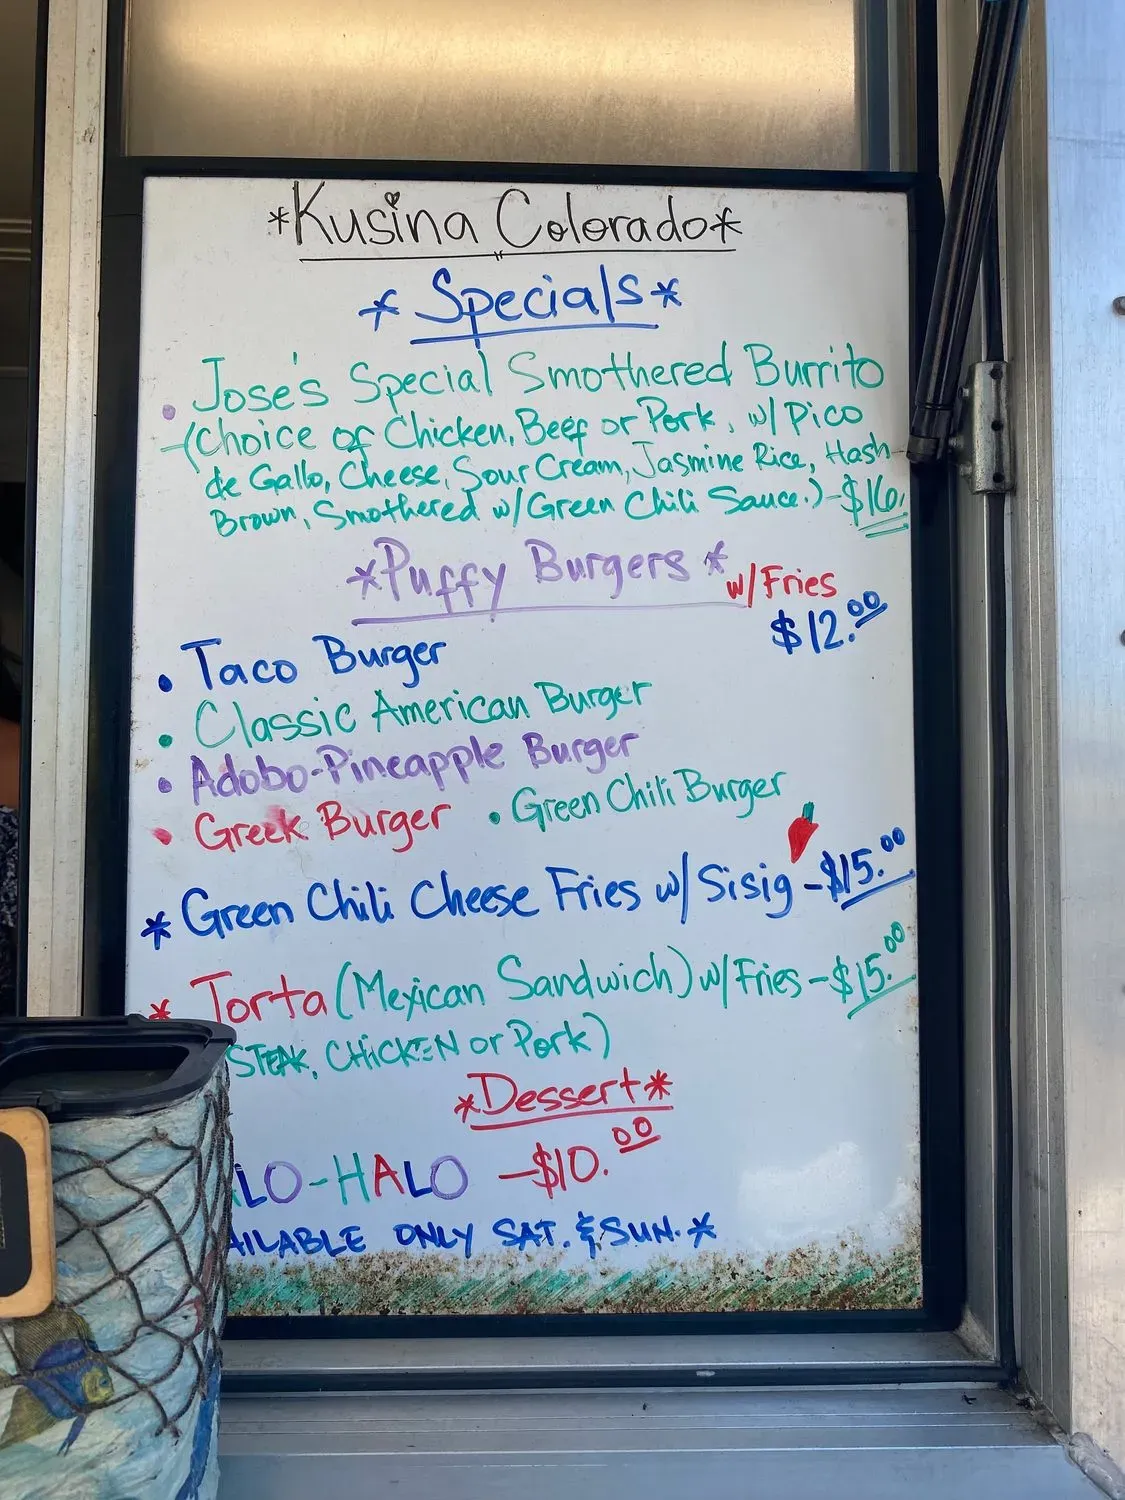 *Kusina Colorado*
*Specials*
• Jose's Special Smothered Burrito
-(Choice of Chicken, Beef or Pork, w/ Pico
de Gallo, Cheese, Sour Cream, Jasmine Rice, Hash-
Brown, Smothered w/ Green Chili Sauce.) - $16.
*Puffy Burgers*
w/ Fries
$12.00
• Taco Burger
• Classic American Burger
• Adobo-Pineapple Burger
• Greek Burger • Green Chili Burger
* Green Chili Cheese Fries w/ Sisig - $15.00
* Torta (Mexican Sandwich) w/ Fries - $15.00
STEAK, CHICKEN or Pork)
*Dessert*
LO-HALO - $10.00
AILABLE ONLY SAT. & SUN. *